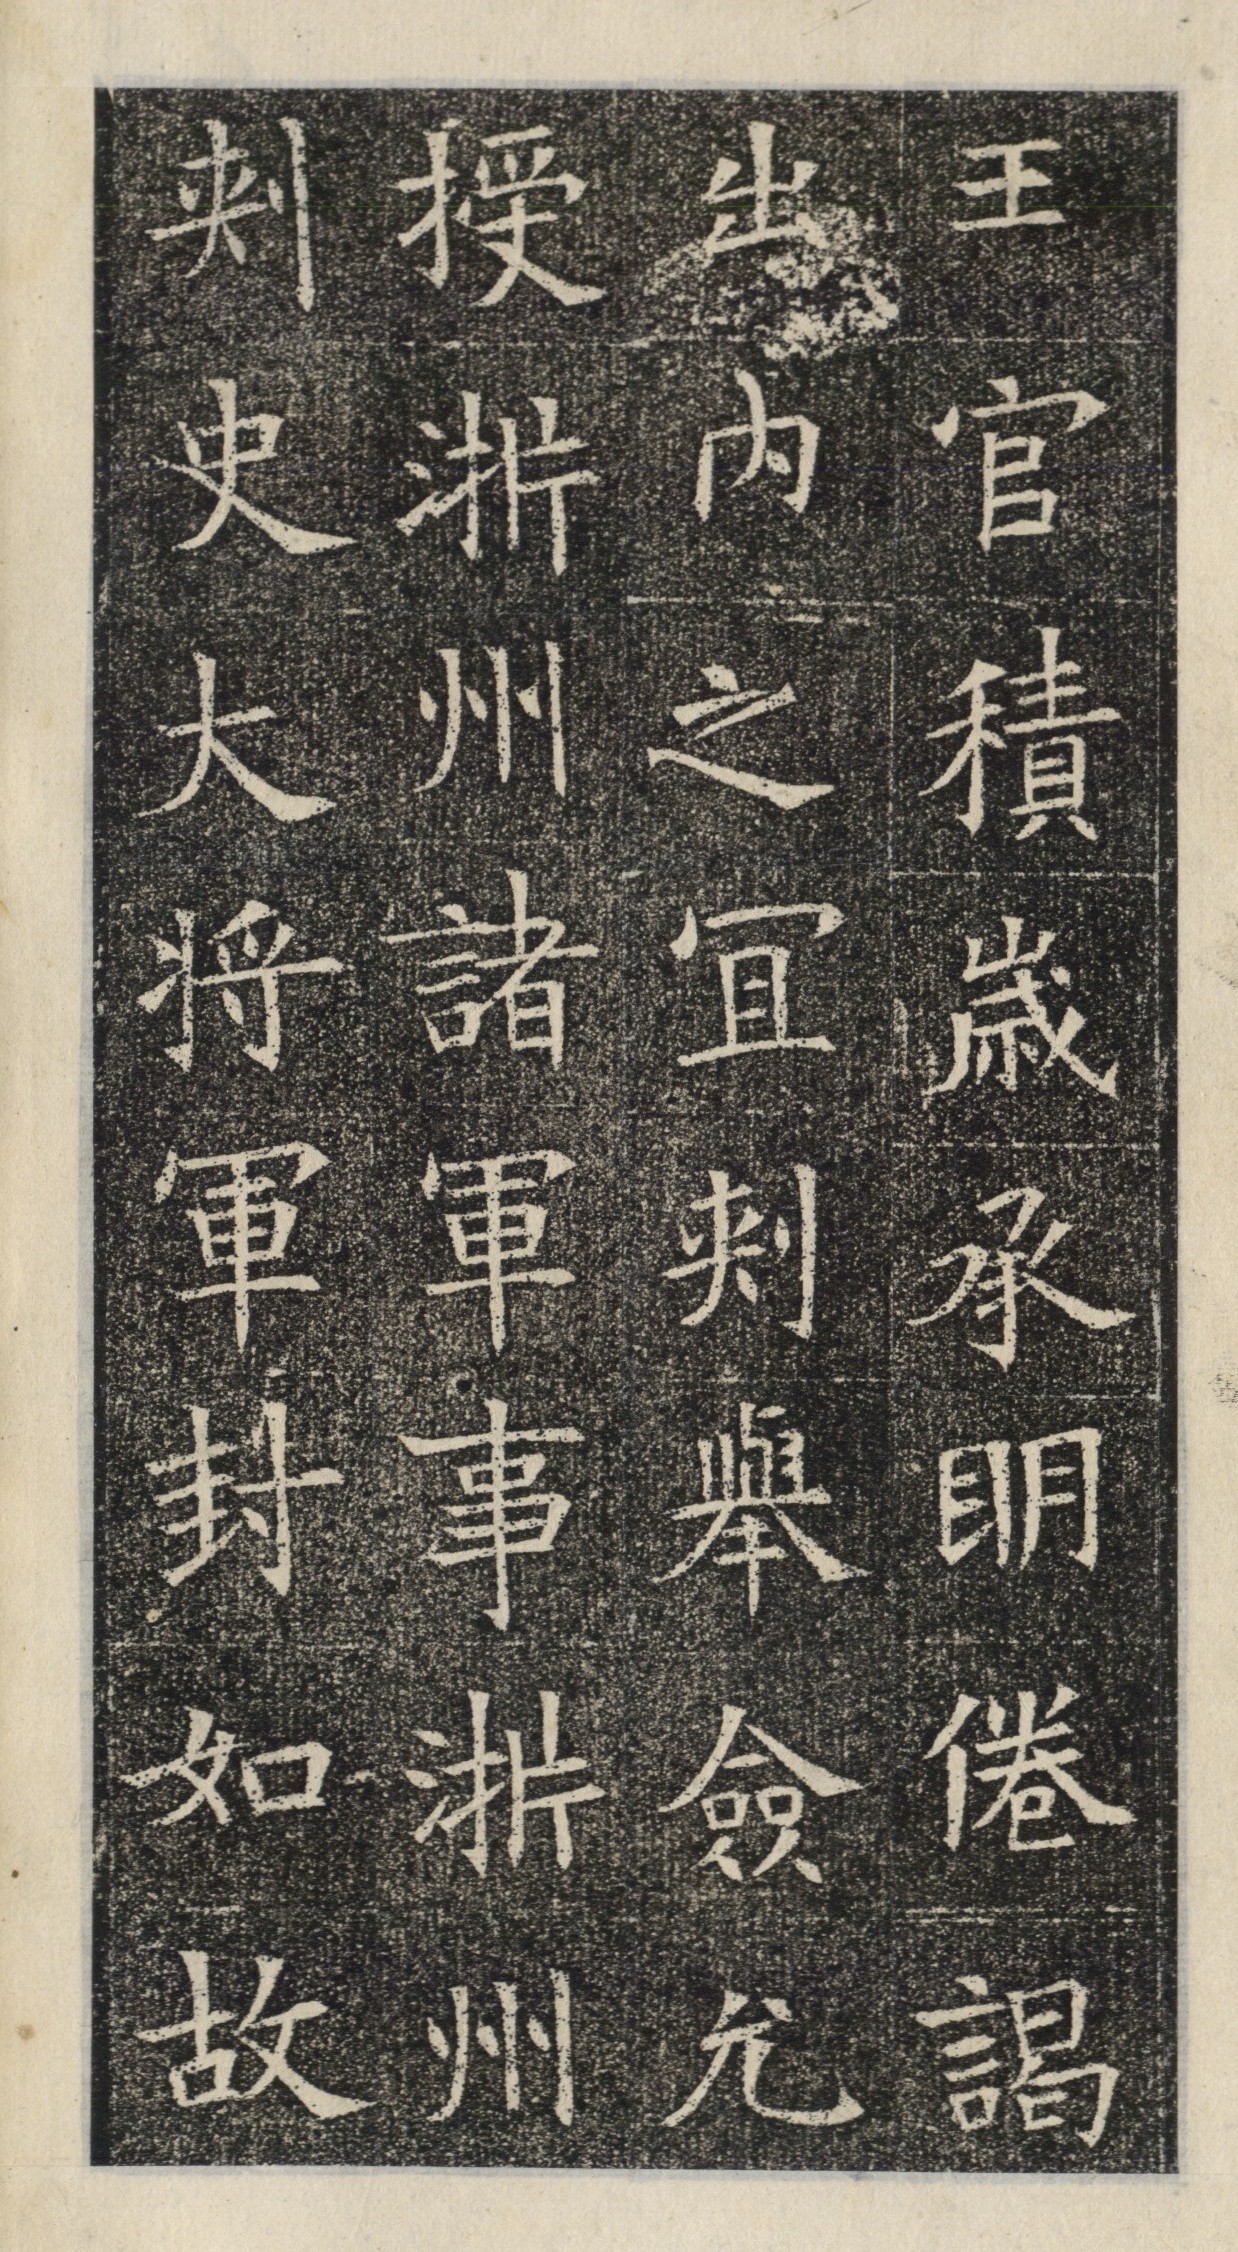 王官積歲承明倦謁
出內之宜刺舉僉允
授淅州諸軍事淅州
刺史大將軍封如故